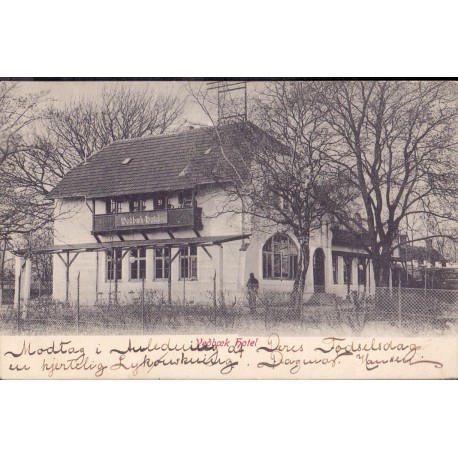 Vedbæk Hotel
Vedbæk Hotel
Modtag i Anledning af Deres Fødselsdag
en hjertelig Lykønskning. Dagmar Hansen.